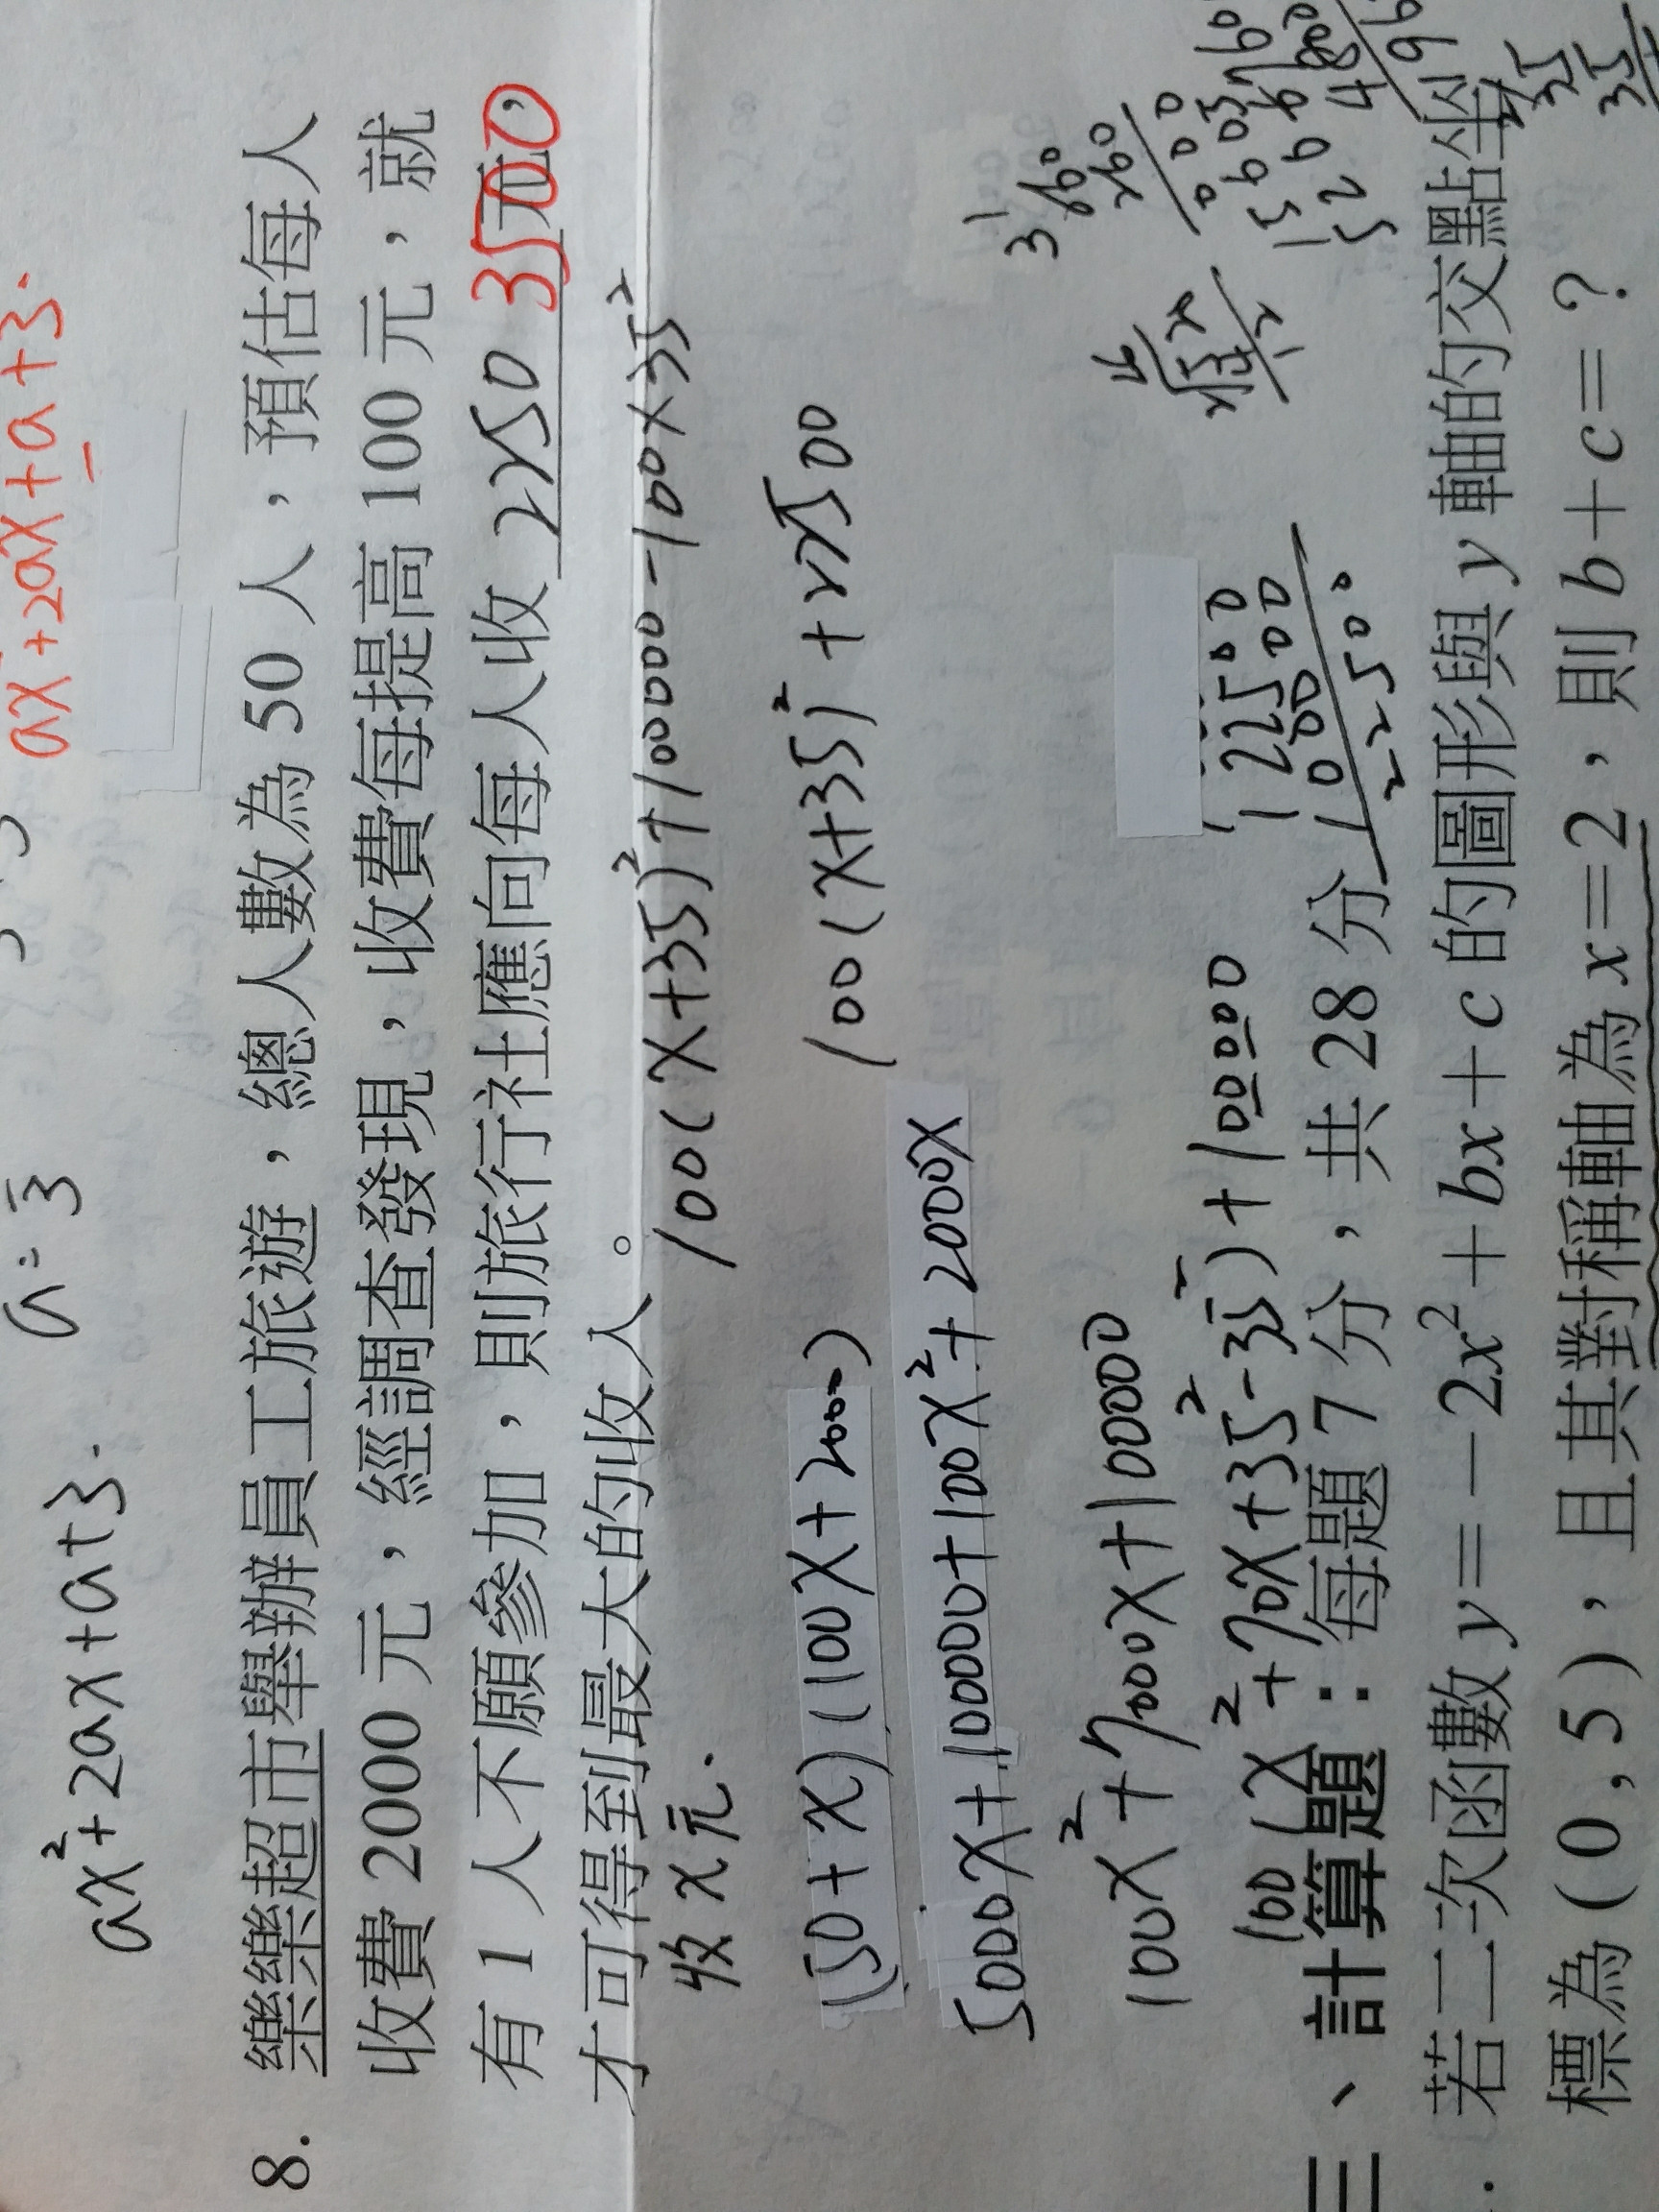 ax²+2ax+a+3.
a=3
ax²+2ax+a+3.
8. 樂樂超市舉辦員工旅遊，總人數為 50 人，預估每人
收費 2000 元，經調查發現，收費每提高 100 元，就
有 1 人不願參加，則旅行社應向每人收 2250 3500 元，
才可得到最大的收入。
收 x 元.
100(x+35)²+100000-100×35²
(50+x)(100x+2000)
100(x+35)²+22500
5000x+100000+100x²+2000x
100x²+7000x+100000
100(x²+70x+35²-35²)+100000
122500
100000
22500
三、計算題：每題 7 分，共 28 分
若二次函數 y=－2x²＋bx＋c 的圖形與 y 軸的交點坐
標為 ( 0 , 5 )，且其對稱軸為 x＝2，則 b＋c＝？